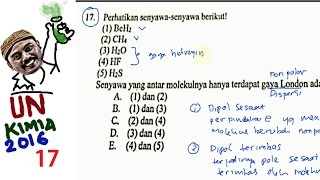 UN
KIMIA
2016
17
17. Perhatikan senyawa-senyawa berikut!
(1) BeH₂
(2) CH₄
(3) H₂O
(4) HF
gaya hidrogen
(5) H₂S
non polar
Senyawa yang antar molekulnya hanya terdapat gaya London ada
Dispersi
A. (1) dan (2)
B. (2) dan (3)
C. (2) dan (4)
D. (3) dan (4)
E. (4) dan (5)
1 Dipol sesaat
perpindahan e yg
molekul berubah nonpo
2 Dipol terimbas
terjadinya pole sesaat
terimbas oleh molekul